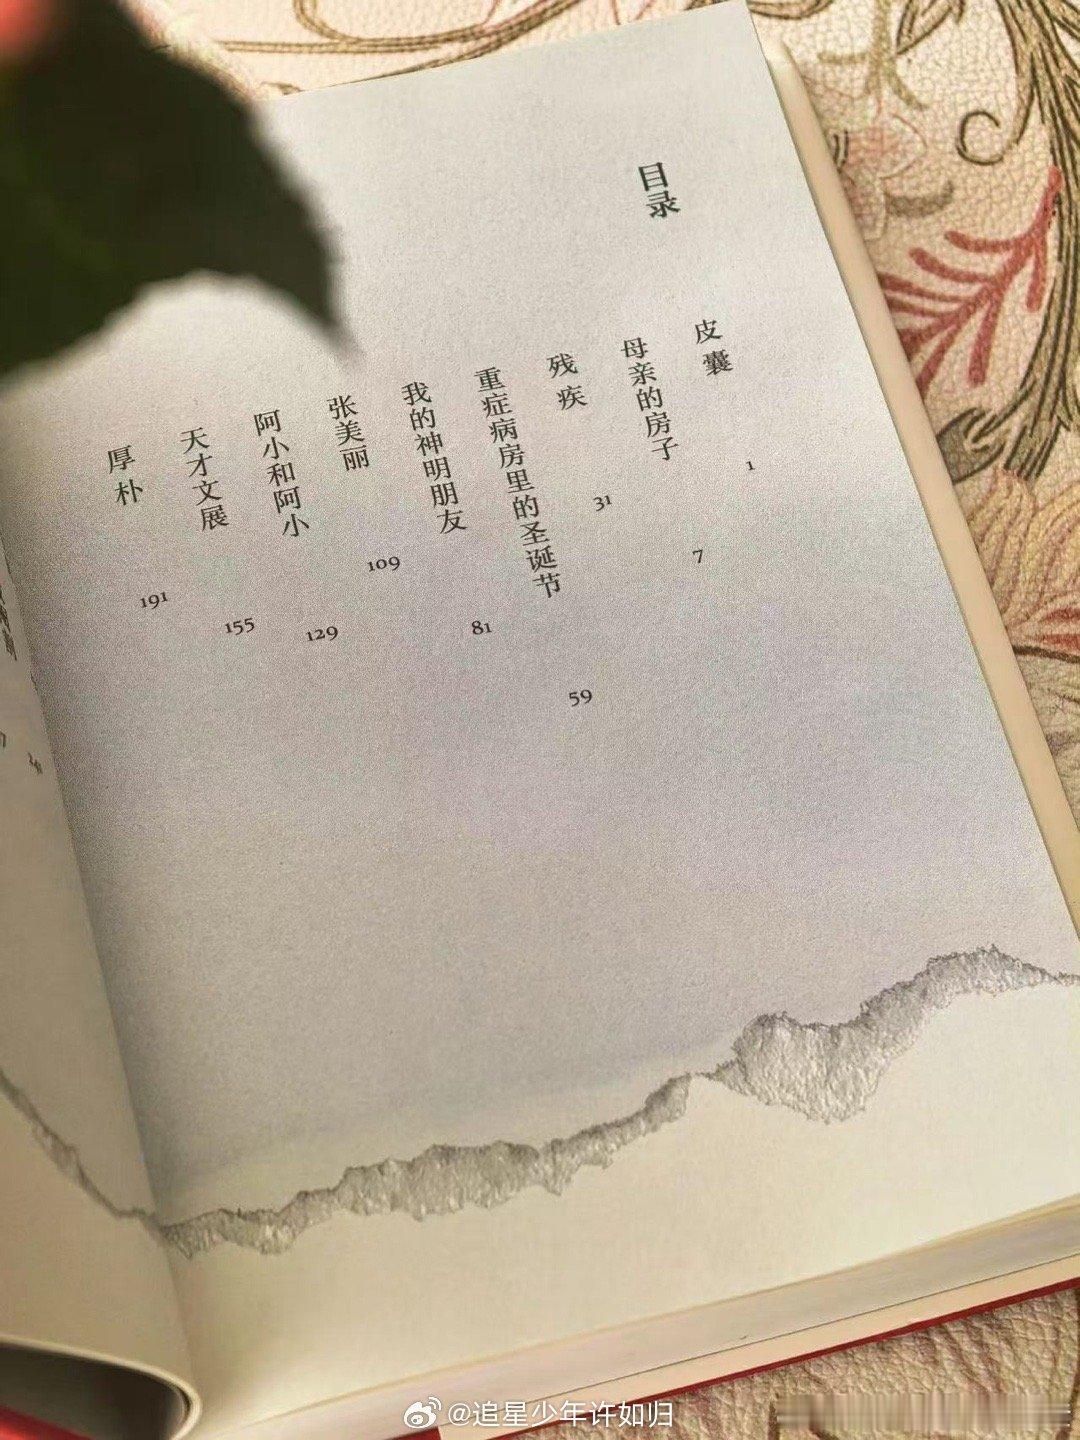 目录
皮囊
1
母亲的房子
7
残疾
31
重症病房里的圣诞节
59
我的神明朋友
81
张美丽
109
阿小和阿小
129
天才文展
155
厚朴
191
@追星少年许如归